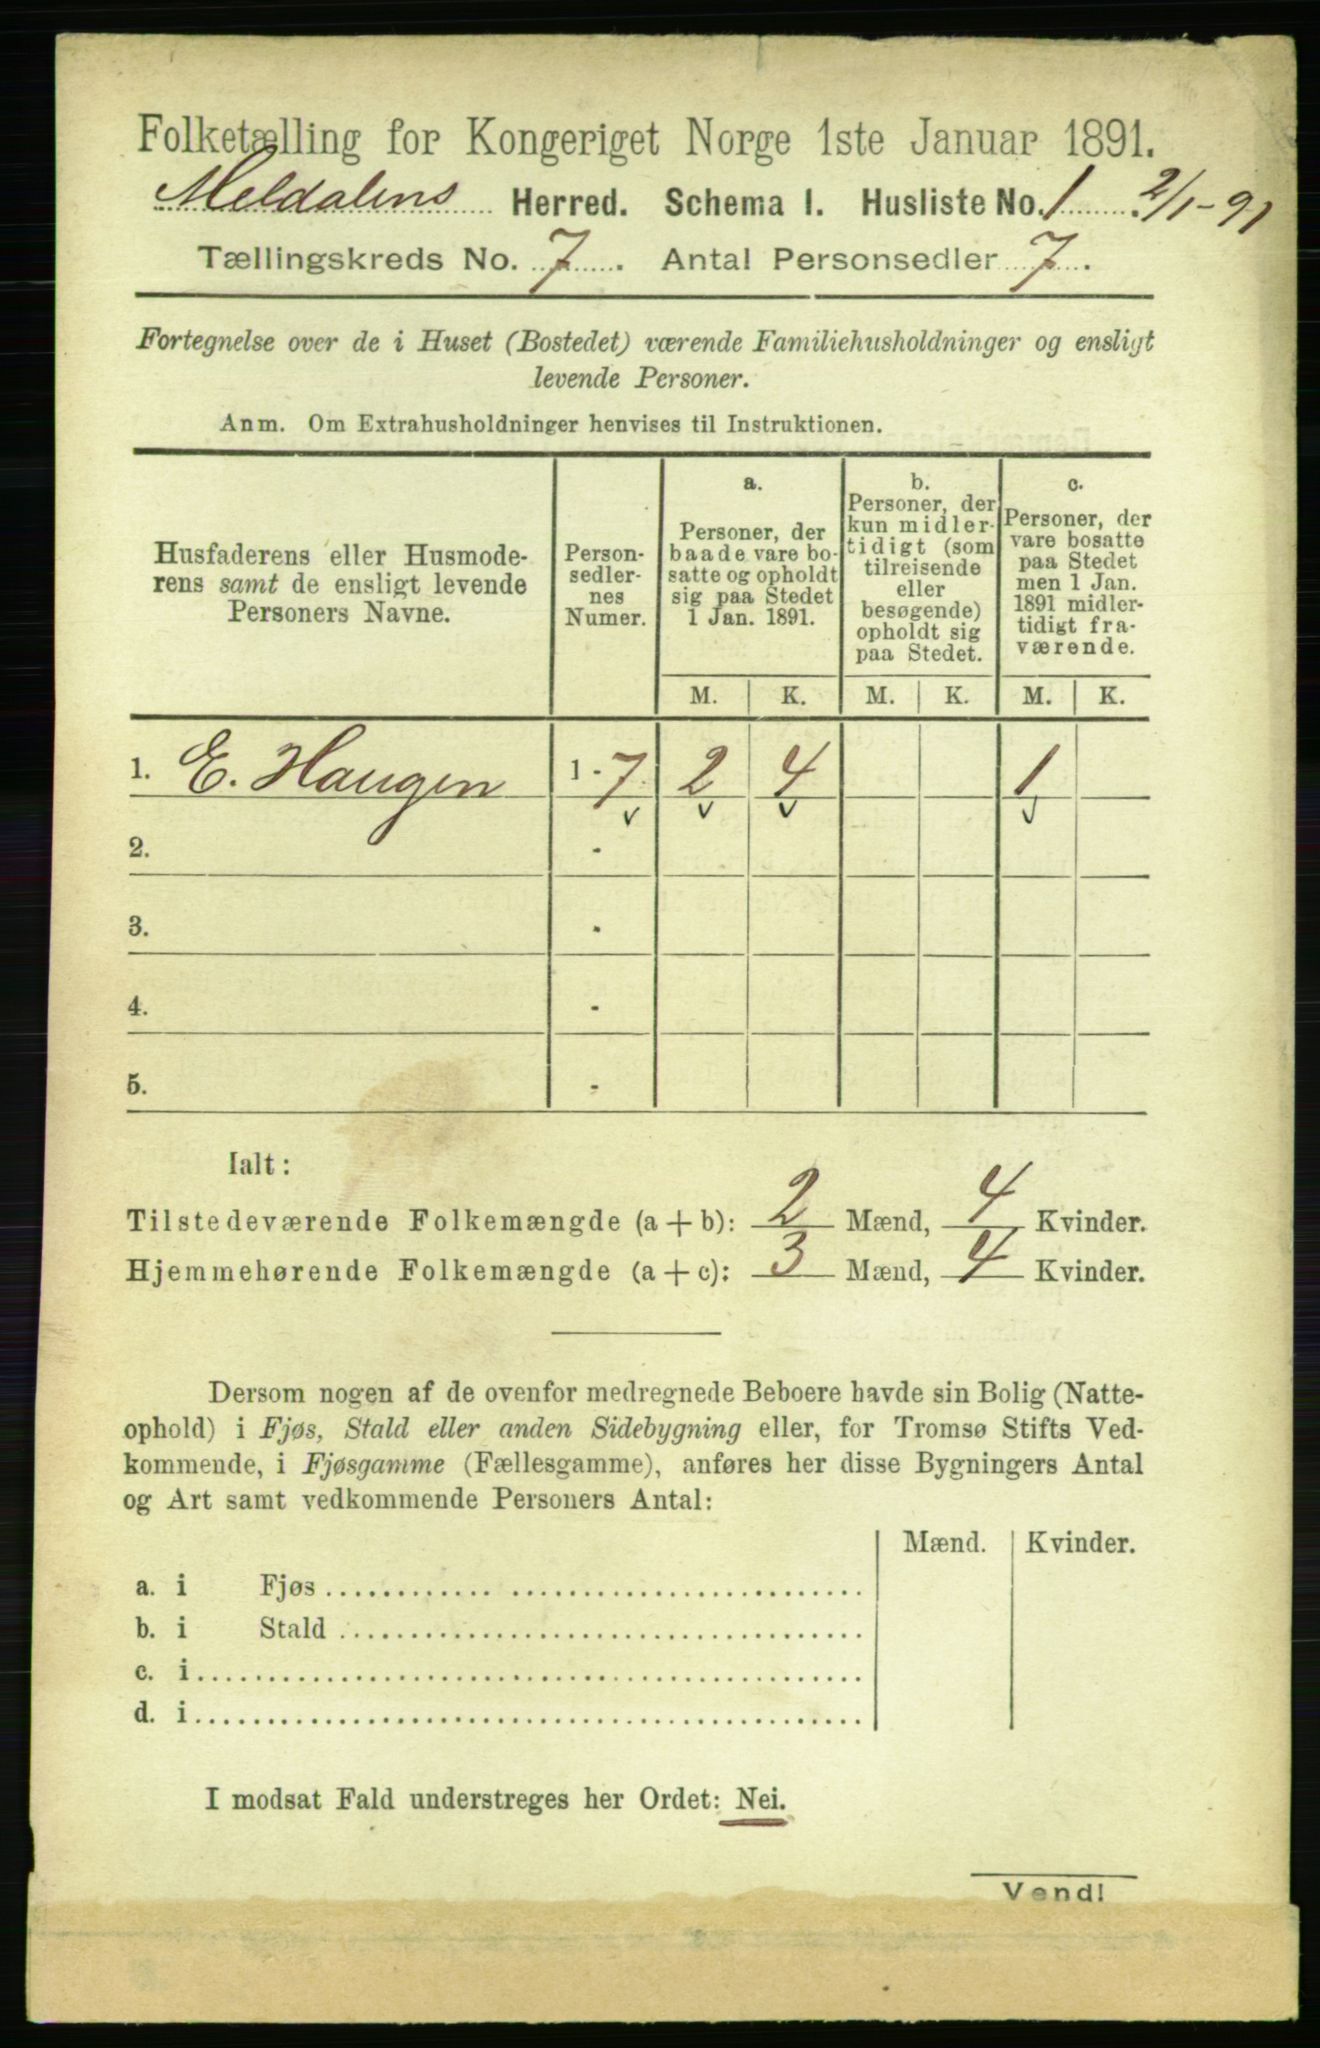 Folketælling for Kongeriget Norge 1ste Januar 1891.
Meldalens Herred. Schema I. Husliste No. 1 2/1-91
Tællingskreds No. 7. Antal Personsedler 7.
Fortegnelse over de i Huset (Bostedet) værende Familiehusholdninger og ensligt
levende Personer.
Anm. Om Extrahusholdninger henvises til Instruktionen.
Husfaderens eller Husmode-
rens samt de ensligt levende
Personers Navne.
Person-
sedler-
nes
Numer.
a.
Personer, der
baade vare bo-
satte og opholdt
sig paa Stedet
1 Jan. 1891.
b.
Personer, der
kun midler-
tidigt (som
tilreisende
eller
besøgende)
opholdt sig
paa Stedet.
c.
Personer, der
vare bosatte
paa Stedet
men 1 Jan.
1891 midler-
tidigt fra-
værende.
M. K. M. K. M. K.
1. E. Haugen 1-7 2 4 1
2. -
3. -
4. -
5. -
Ialt:
Tilstedeværende Folkemængde (a+b): 2 Mænd, 4 Kvinder.
Hjemmehørende Folkemængde (a+c): 3 Mænd, 4 Kvinder.
Dersom nogen af de ovenfor medregnede Beboere havde sin Bolig (Natte-
ophold) i Fjøs, Stald eller anden Sidebygning eller, for Tromsø Stifts Ved-
kommende, i Fjøsgamme (Fællesgamme), anføres her disse Bygningers Antal
og Art samt vedkommende Personers Antal:
Mænd. Kvinder.
a. i Fjøs
b. i Stald
c. i
d. i
I modsat Fald understreges her Ordet: Nei.
Vend!